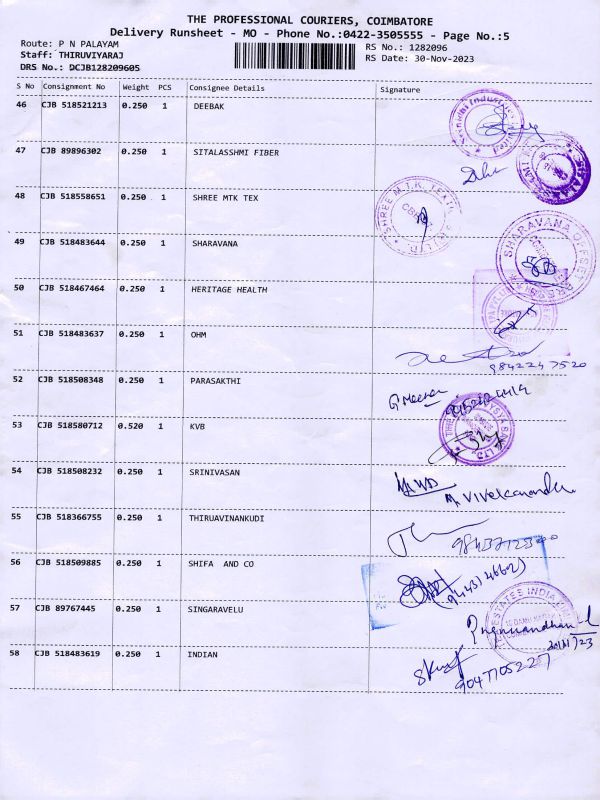 THE PROFESSIONAL COURIERS, COIMBATORE
Delivery Runsheet - MO - Phone No.:0422-3505555 - Page No.:5
Route: P N PALAYAM RS No.: 1282096
Staff: THIRUVIYARAJ RS Date: 30-Nov-2023
DRS No.: DCJB128209605
S No Consignment No Weight PCS Consignee Details Signature
46 CJB 518521213 0.250 1 DEEBAK
47 CJB 89896302 0.250 1 SITALASHMI FIBER
48 CJB 518558651 0.250 1 SHREE MTK TEX
SHREE M.T.K. TEX
49 CJB 518483644 0.250 1 SHARAVANA
SHARAVANA OFFSET
50 CJB 518467464 0.250 1 HERITAGE HEALTH
51 CJB 518483637 0.250 1 OHM
9842247520
52 CJB 518508348 0.250 1 PARASAKTHI
G Meena
53 CJB 518580712 0.520 1 KVB
54 CJB 518508232 0.250 1 SRINIVASAN
M Vivekanandhan
55 CJB 518366755 0.250 1 THIRUAVINANKUDI
56 CJB 518509885 0.250 1 SHIFA AND CO
57 CJB 89767445 0.250 1 SINGARAVELU
ESTATES INDIA
58 CJB 518483619 0.250 1 INDIAN
9047105227